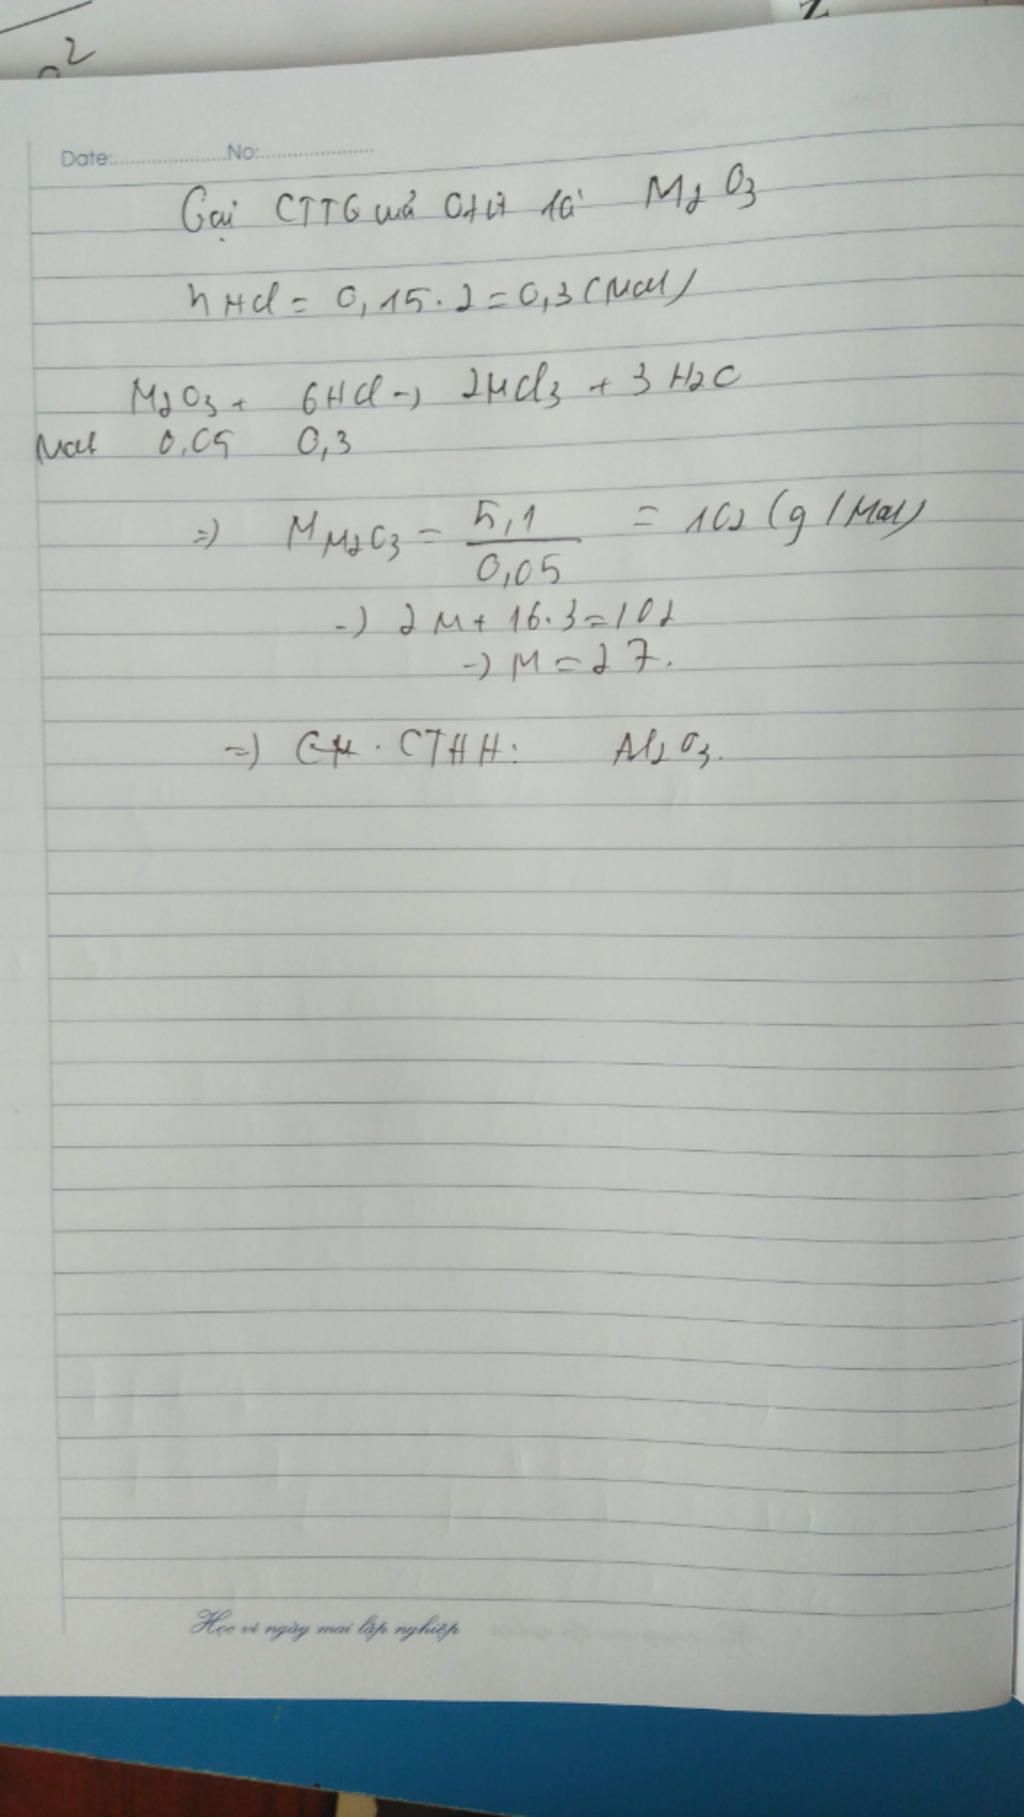 2
Date:....................No:....................
Gọi CTTQ của oxit là M2O3
nHCl = 0,15.2=0,3(Mol)
M2O3 + 6HCl -> 2MCl3 + 3H2O
Mol 0,05 0,3
=> M M2O3 = 5,1 / 0,05 = 102 (g/Mol)
-> 2M + 16.3=102
-> M=27.
=> CTHH: Al2O3.
Học vì ngày mai lập nghiệp